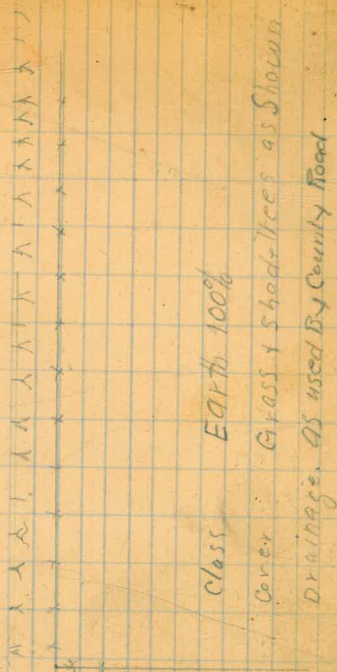 Class Earth 100%
Cover Grass & Shade Trees as Shown
Drainage. as used By County Road.